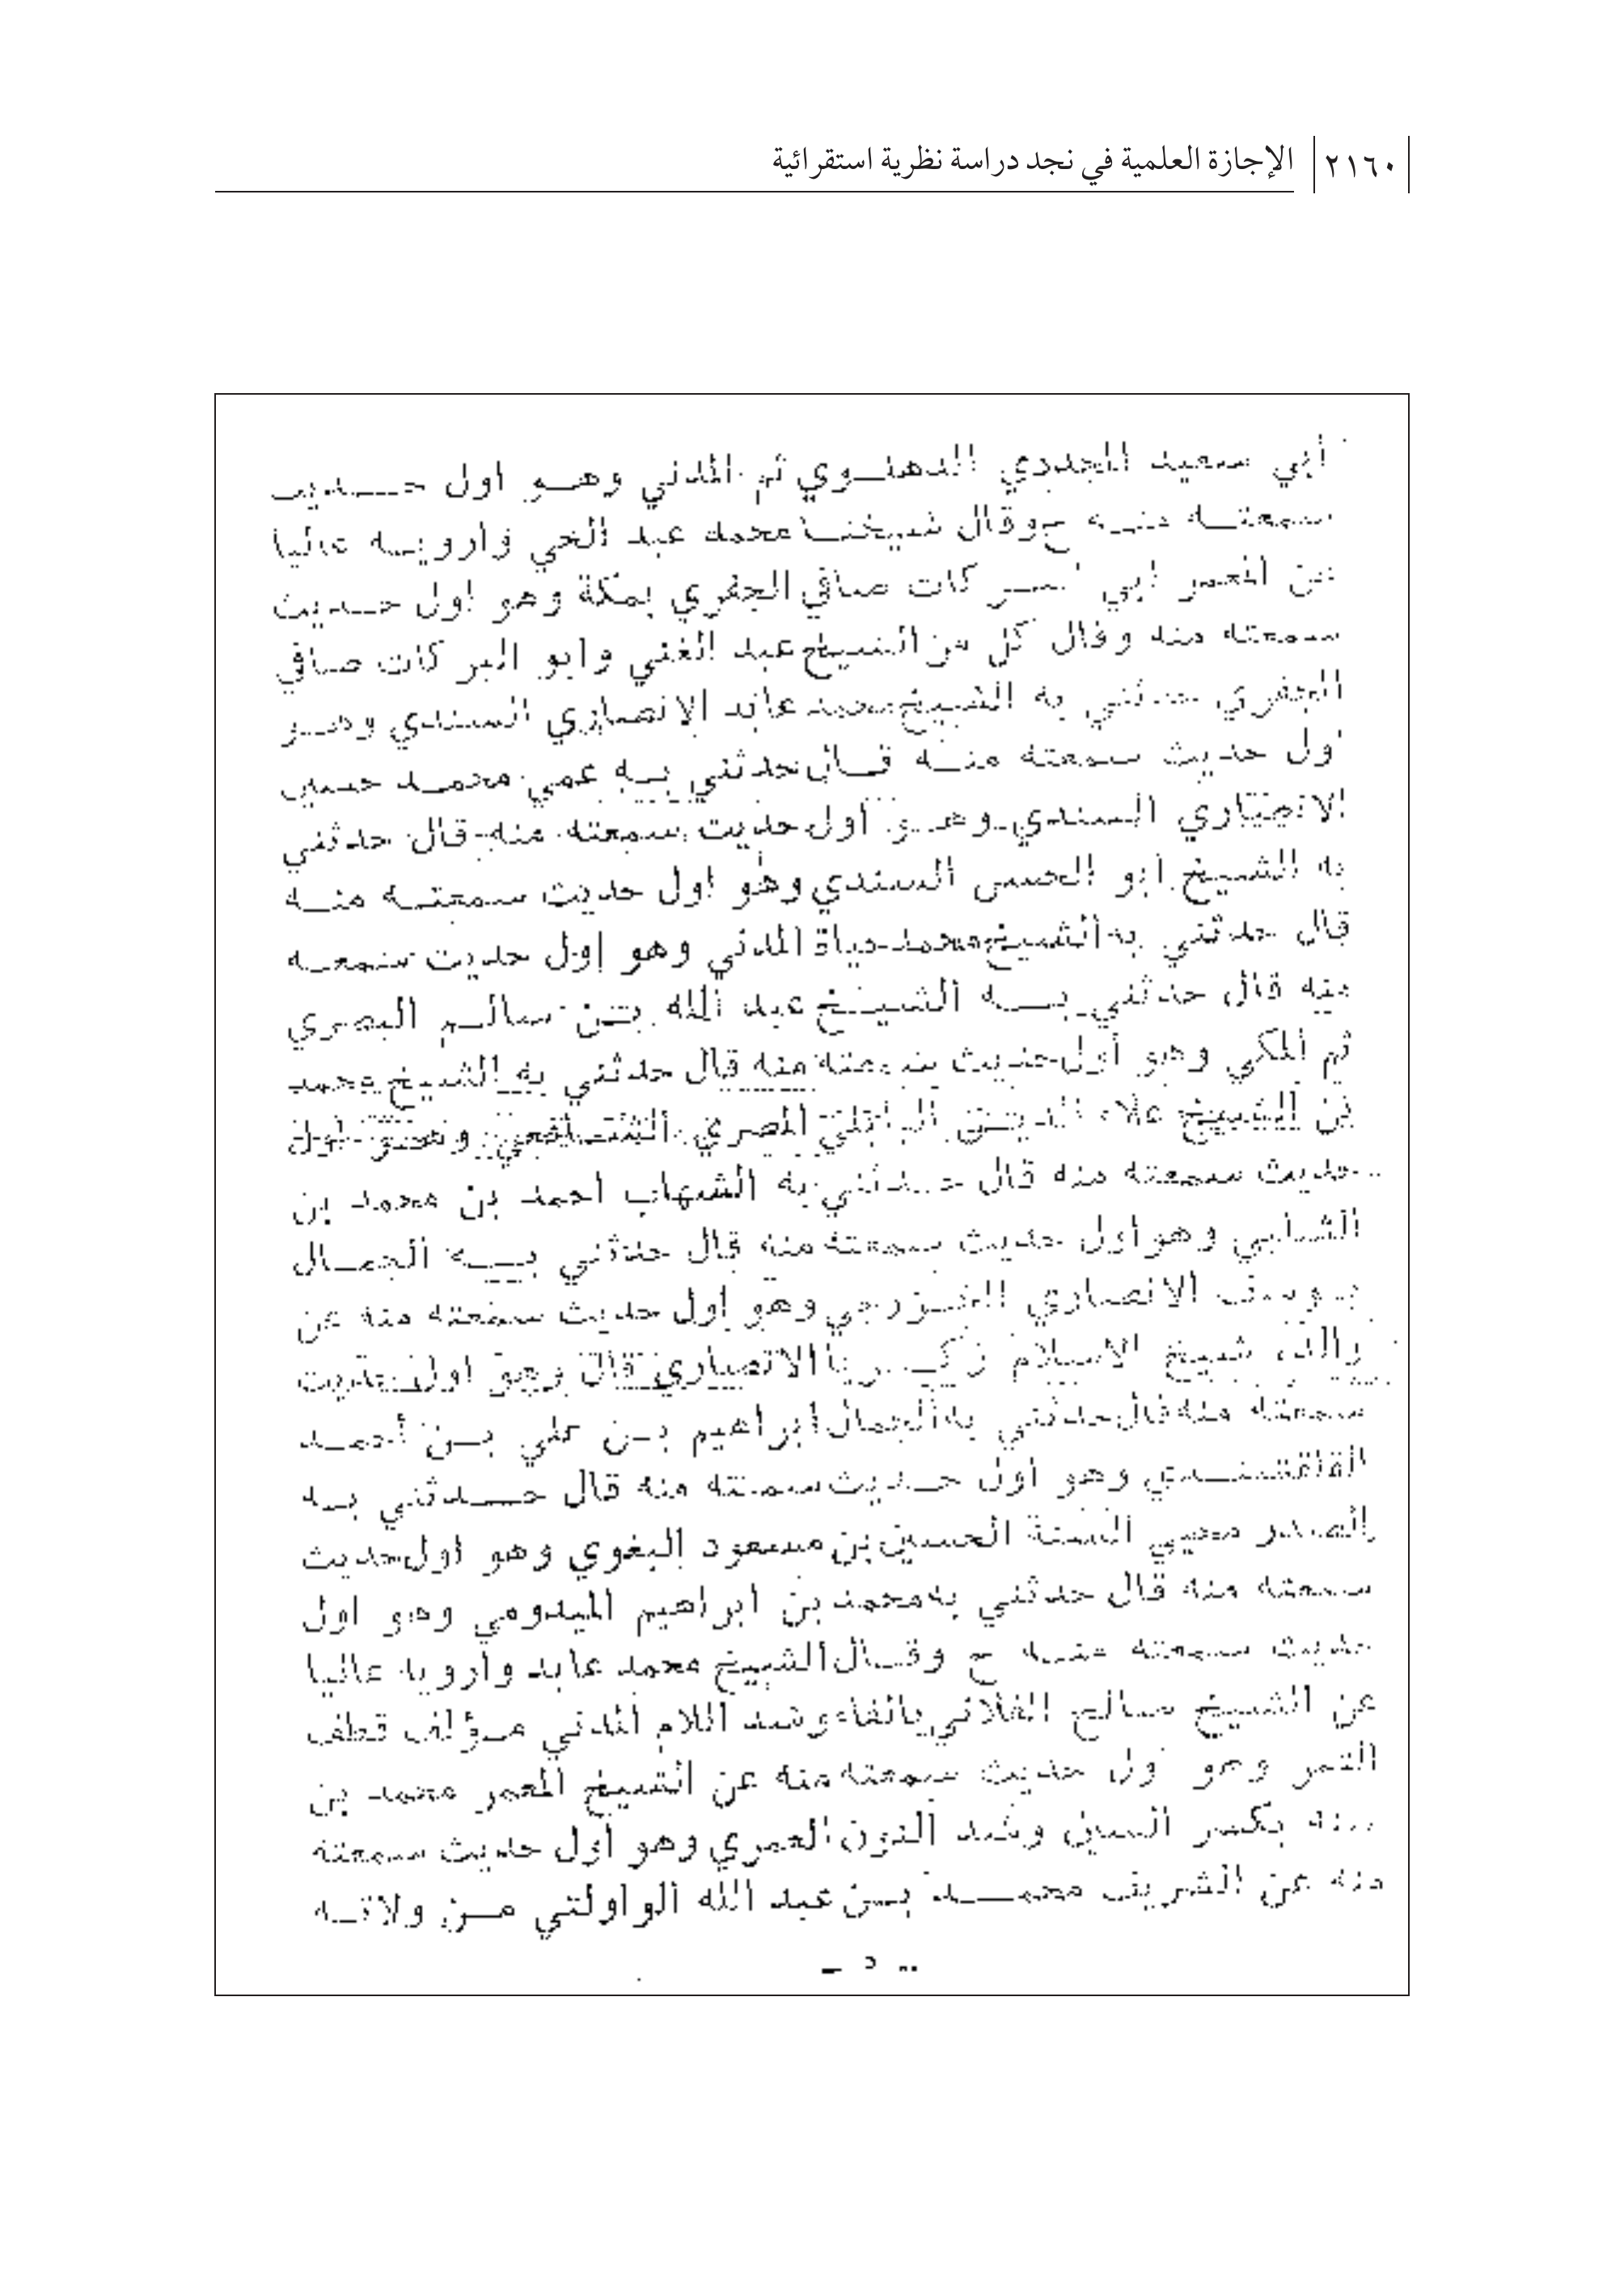 ٢١٦٠ الإجازة العلمية في نجد دراسة نظرية استقرائية
أبي سعيد المجددي الدهنوي ثم المدني وهو اول حديث
سمعته منه ح وقال شيخنا محمد عبد الحي وأرويه عاليا
عن المعمر ابي البركات صافي الجفري بمكة وهو اول حديث
سمعته منه وقال كل من الشيخ عبد الغني وابو البركات صافي
الجفري حدثني به الشيخ محمد عابد الانصاري السندي وهو
اول حديث سمعته منه قال حدثني به عمي محمد حسين
الانصاري السندي وهو أول حديث سمعته منه قال حدثني
به الشيخ ابو الحسن السندي وهو اول حديث سمعته منه
قال حدثني به الشيخ محمد حياة المدني وهو اول حديث سمعه
منه قال حدثني به الشيخ عبد الله بن سالم البصري
ثم المكي وهو أول حديث سمعته منه قال حدثني به الشيخ محمد
بن الشيخ علاء الدين البابلي المصري الشافعي وهو اول
حديث سمعته منه قال حدثني به الشهاب احمد بن محمد بن
الشلبي وهو اول حديث سمعته منه قال حدثني به الجمال
يوسف الانصاري الخزرجي وهو اول حديث سمعته منه عن
والده شيخ الاسلام زكريا الانصاري قال وهو اول حديث
سمعته منه قال حدثني به الجمال ابراهيم بن علي بن أحمد
القلقشندي وهو اول حديث سمعته منه قال حدثني به
الصدر محيي السنة الحسين بن مسعود البغوي وهو اول حديث
سمعته منه قال حدثني به محمد بن ابراهيم الميدومي وهو اول
حديث سمعته منه ح وقال الشيخ محمد عابد وأرويه عاليا
عن الشيخ صالح الفلاني بالفاء وشد اللام المدني مؤلف قطف
الثمر وهو اول حديث سمعته منه عن الشيخ المعمر محمد بن
سنه بكسر السين وشد النون العمري وهو أول حديث سمعته
منه عن الشريف محمد بن عبد الله الواولتي من ولاته
- ٥ -